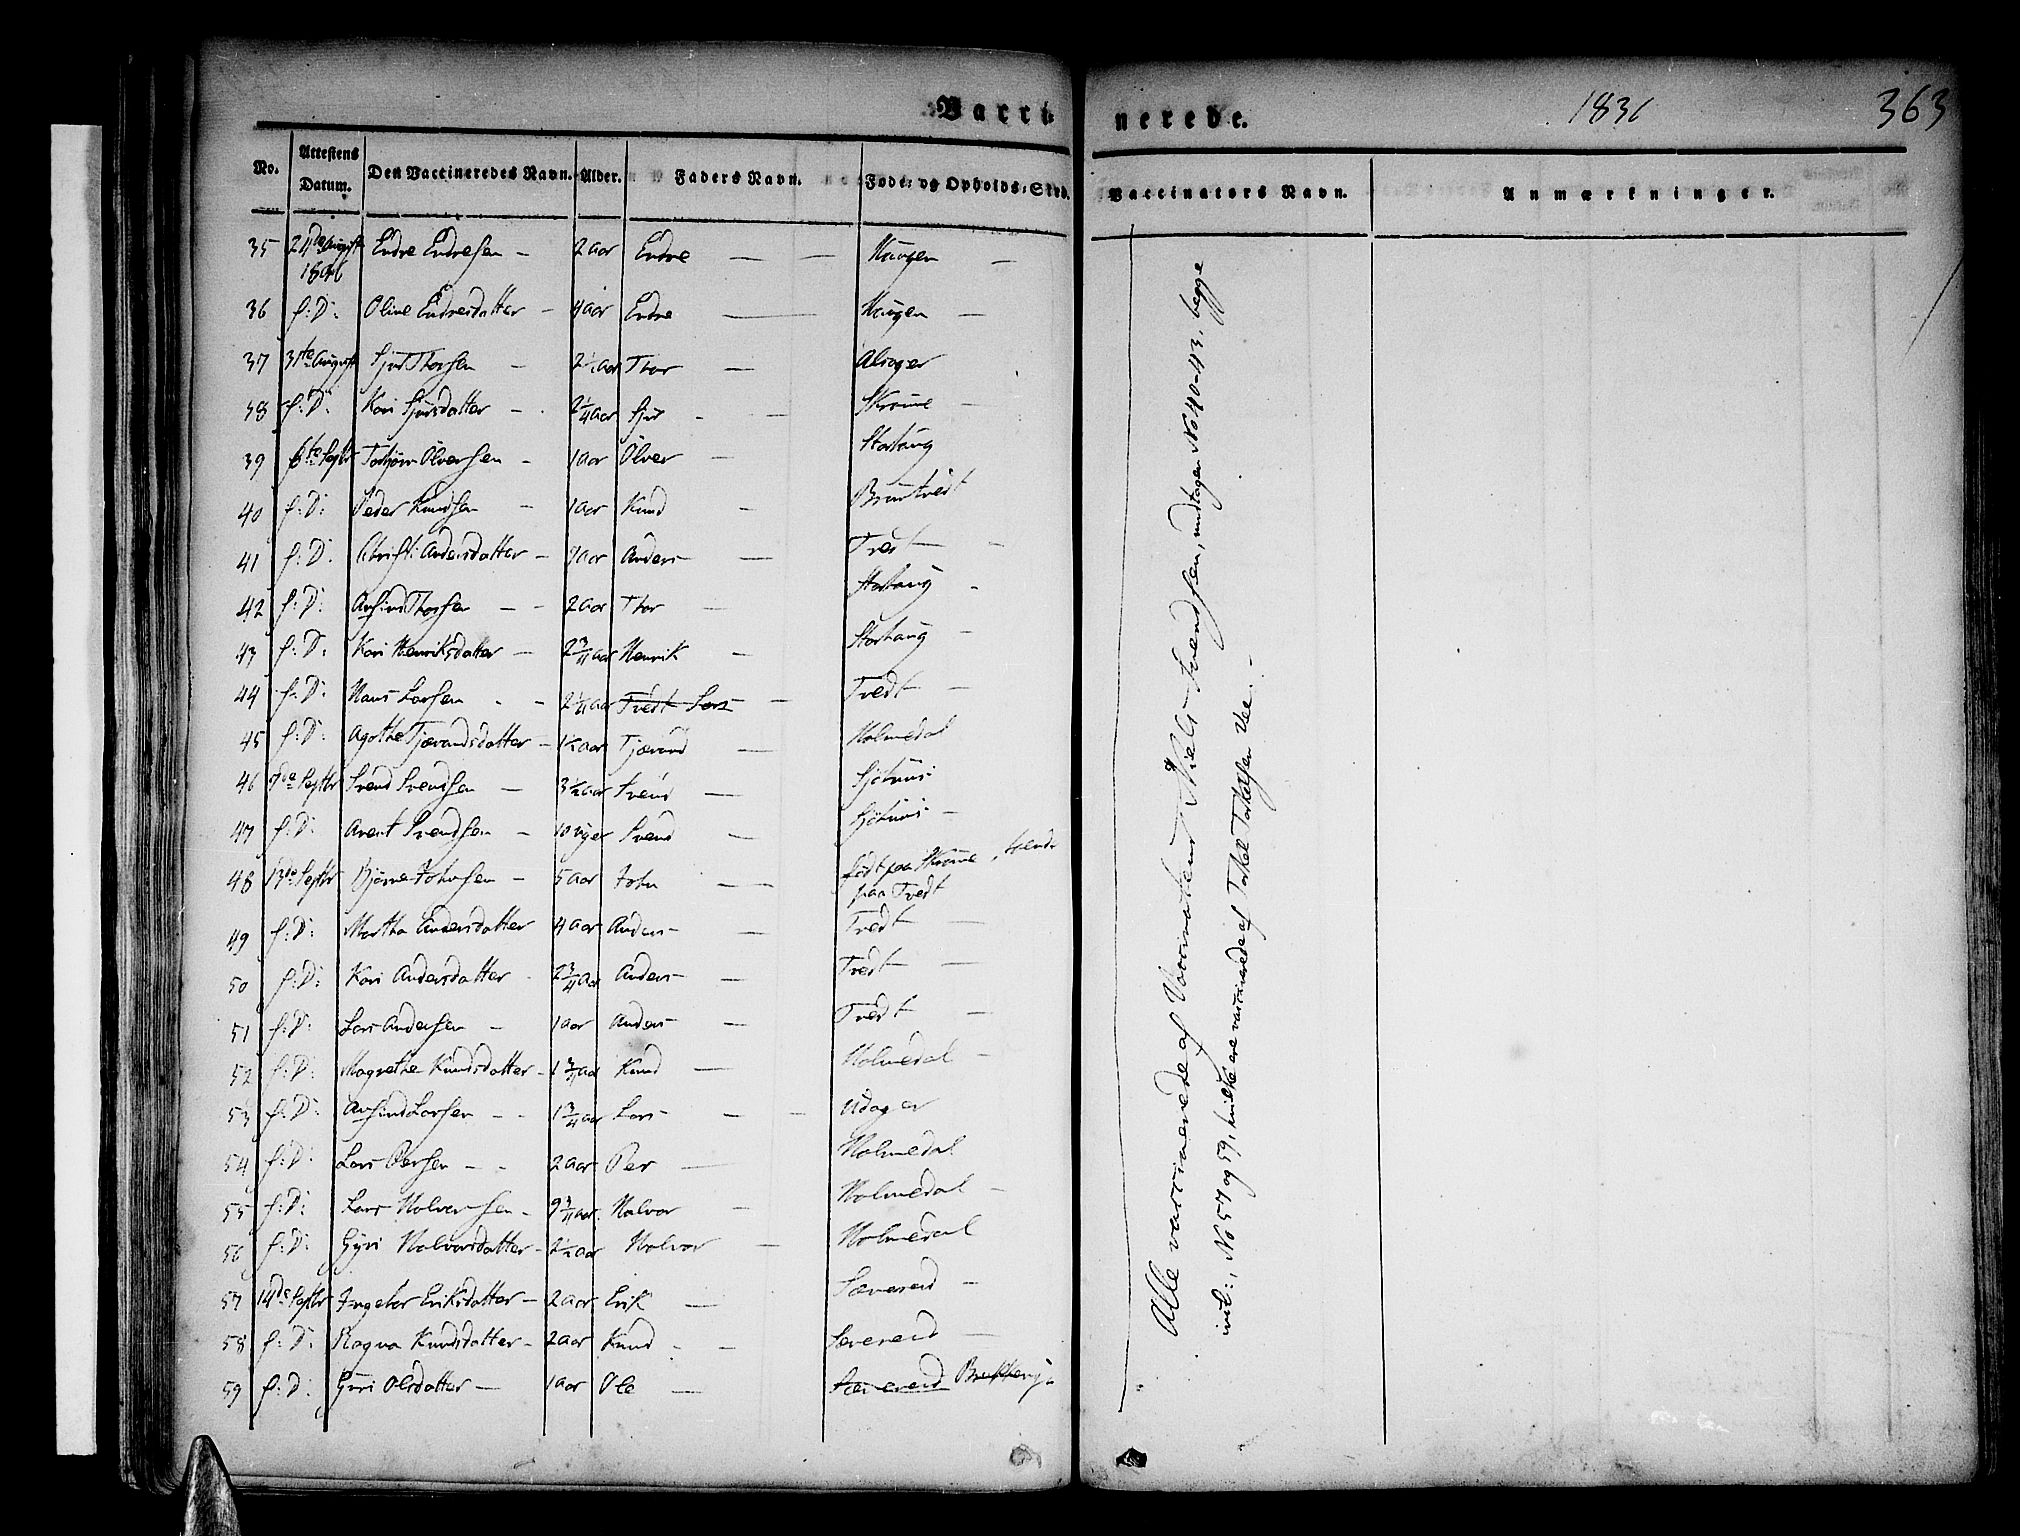 Vacci-
nerede.
1836
363
No. Attestens Datum. Den Vaccineredes Navn. Alder. Faders Navn. Føde- og Opholds-Sted. Vaccinators Navn. Anmærkninger.
35 24de August Endre Endresen - 2 aar Endre — — Haugen —
36 f: D: Oline Endresdatter - 4 aar Endre — Haugen —
37 31te August Sjur Thorsen - 2½ aar Thor — Alsager
38 f: D: Kari Sjursdatter - 2¼ aar Sjur - — Skromme —
39 6te Septbr Torbjørn Ølversen - 1 aar Ølver — Storhaug
40 f: D: Peder Knudsen - 1 aar Knud — Bruntvedt
41 f: D: Christi Andersdatter - 1 aar Anders — Tvedt —
42 f: D: Anfind Thorsen - - 2 aar Thor — Storhaug -
43 f: D: Kari Henriksdatter - 2¾ aar Henrik — Storhaug —
44 f: D: Hans Larsen - - 2¼ aar Tvedt Lars — Tvedt —
45 f: D: Agathe Tjærandsdatter - 1½ aar Tjærand — Holmedal
46 7de Septbr Svend Svendsen — 3½ aar Svend —
47 f: D: Svendsen - 10 Uger Svend —
48 13de Septbr Bjørne Johnsen - 5 aar John — født paa Skromme,
paa Tvedt
49 f: D: Martha Andersdatter 4 aar Anders - — Tvedt —
50 f: D: Kari Andersdatter - 2¾ aar Anders - — Tvedt —
51 f: D: Lars Andersen - 1 aar Anders - — Tvedt —
52 f: D: Magrethe Knudsdatter - 1¾ aar Knud — Holmedal -
53 f: D: Anfind Larsen - - 1¾ aar Lars - — Udager
54 f: D: Lars Persen - - 2 aar Per — Holmedal
55 f: D: Lars Halversen - 9¾ aar Halvor — Holmedal -
56 f: D: Gyri Halvorsdatter - 2½ aar Halvor — Holmedal
57 14de Septbr Ingebor Eriksdatter - 2 aar Erik — Sævereid —
58 f: D: Ragna Knudsdatter - 2 aar Knud - — Sævereid —
59 f: D: Guri Olsdatter — 1 aar Ole — Sævereid
Alle vaccinerede af Vaccinateur Niels Svendsen, undtagen No 40-43, begge
incl:, No 57 og 59, hvilke ere vaccinerede af Torkel Torkelsen Vee. -